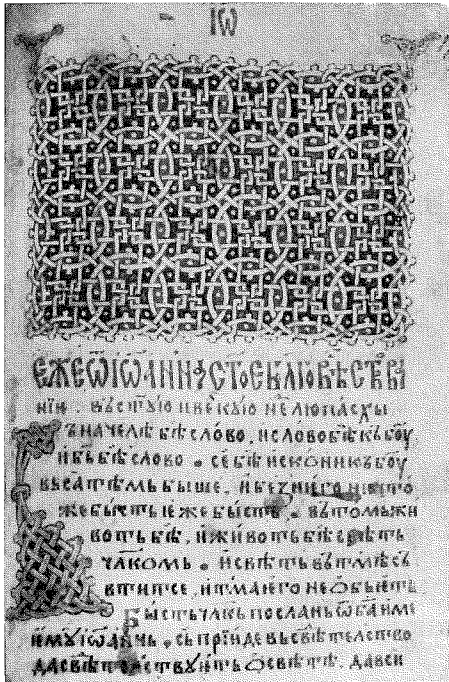 ІѠ
ЕЖЕѠІѠАННꙊСТОЕБЛГОВѢСТВОВА
нїи . въ ст҃ꙋю и великꙋю не҃лю пасхы
Ъ начелѣ бѣ слово , и слово бѣ къ боу
и бь бѣ слово . се бѣ искони къ боу
въса тѣмь быше , и без него ничто
же бысть еже бысть . въ томь жи
воть бѣ , и животь бѣ свѣть
чл҃комь . и свѣть въ тмѣ съ
вьтитсе , и тма его не ѻбьеть
Бысть чл҃кь посланъ ѿ б҃а име
емꙋ іѡаннь . сь прїиде въ свѣтелство
да свѣтелствꙋеть ѻ свѣтѣ . да вси